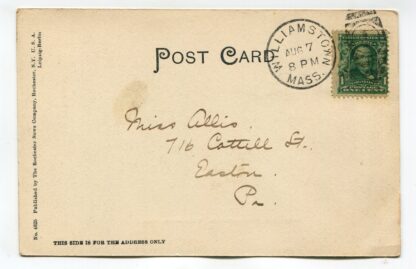 POST CARD
WILLIAMSTOWN
AUG 7
8 PM
MASS.
Miss Allis.
716 Cattell St.
Easton.
Pa.
No. 4625 Published by The Rochester News Company, Rochester, N.Y. U.S.A.
Leipzig-Berlin
THIS SIDE IS FOR THE ADDRESS ONLY